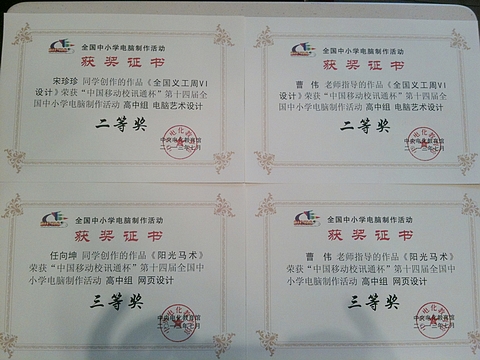 全国中小学电脑制作活动
获奖证书
宋珍珍 同学创作的作品《全国义工周VI
设计》荣获“中国移动校讯通杯”第十四届全
国中小学电脑制作活动 高中组 电脑艺术设计
二等奖
中央电化教育馆
全国中小学电脑制作活动
获奖证书
曹 伟 老师指导的作品《全国义工周VI
设计》荣获“中国移动校讯通杯”第十四届全
国中小学电脑制作活动 高中组 电脑艺术设计
二等奖
中央电化教育馆
全国中小学电脑制作活动
获奖证书
任向坤 同学创作的作品《阳光马术》
荣获“中国移动校讯通杯”第十四届全国中
小学电脑制作活动 高中组 网页设计
三等奖
中央电化教育馆
全国中小学电脑制作活动
获奖证书
曹 伟 老师指导的作品《阳光马术》
荣获“中国移动校讯通杯”第十四届全国中
小学电脑制作活动 高中组 网页设计
三等奖
中央电化教育馆